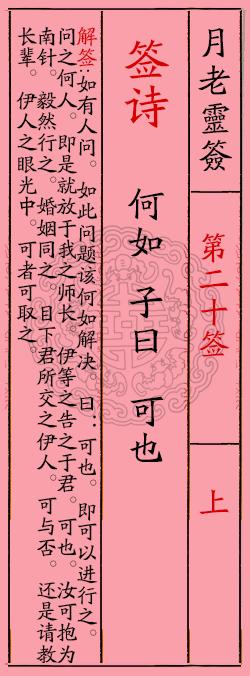 月老靈簽
第二十签
上
签诗
何如 子曰 可也
解签:如有人问。如此问题该何如解决 曰:可也。即可以进行之。
问之何人。即是就放于我之师长。伊等之告之于君。可也。汝可抱为
南针。毅然行之。婚姻同之。目下君所交之伊人。可与否。还是请教
长辈。伊人之眼光中。可者可取之。